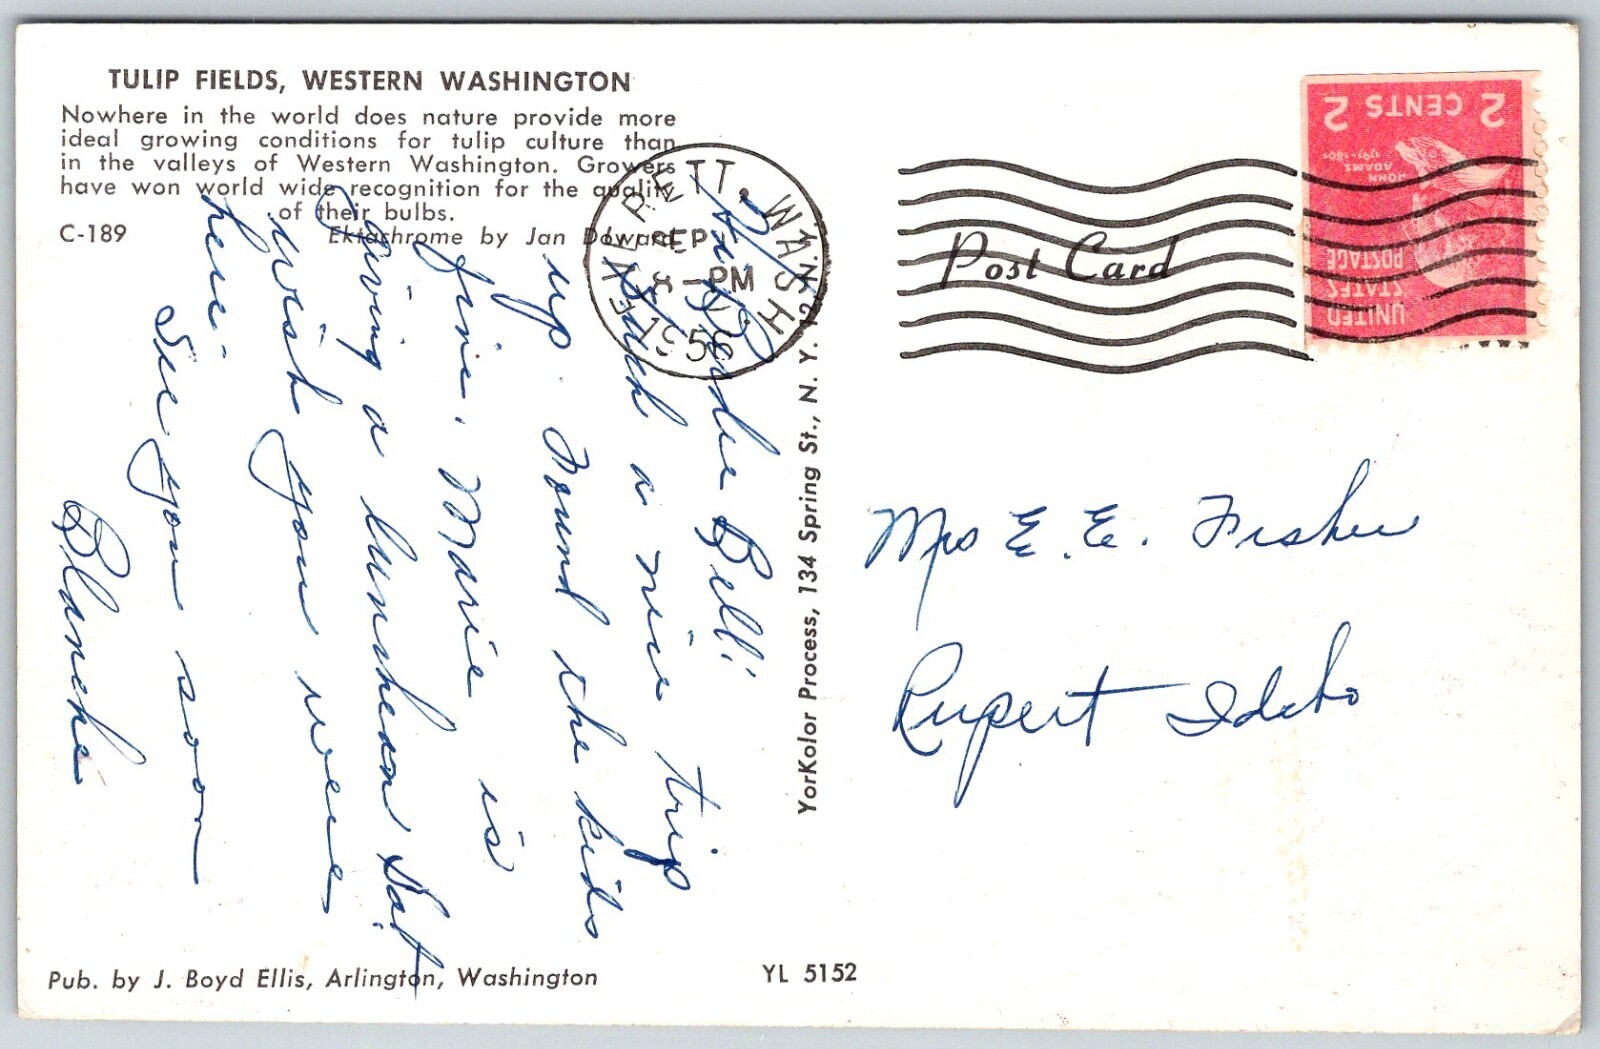 TULIP FIELDS, WESTERN WASHINGTON
Nowhere in the world does nature provide more
ideal growing conditions for tulip culture than
in the valleys of Western Washington. Growers
have won world wide recognition for the quality
of their bulbs.
C-189
Ektachrome by Jan Doward
EVERETT, WASH
SEP
PM
195
2 CENTS 2
JOHN
ADAMS
1797-1801
UNITED
STATES
POSTAGE
Post Card
Bell!
Had a nice trip
up. Found the kids
fine. Marie is
giving a luncheon Sat
wish you were
here-
See you soon
Blanche
YorKolor Process, 134 Spring St., N. Y. 12, N.Y.
Mrs E. E. Fisher
Rupert Idaho
Pub. by J. Boyd Ellis, Arlington, Washington
YL 5152